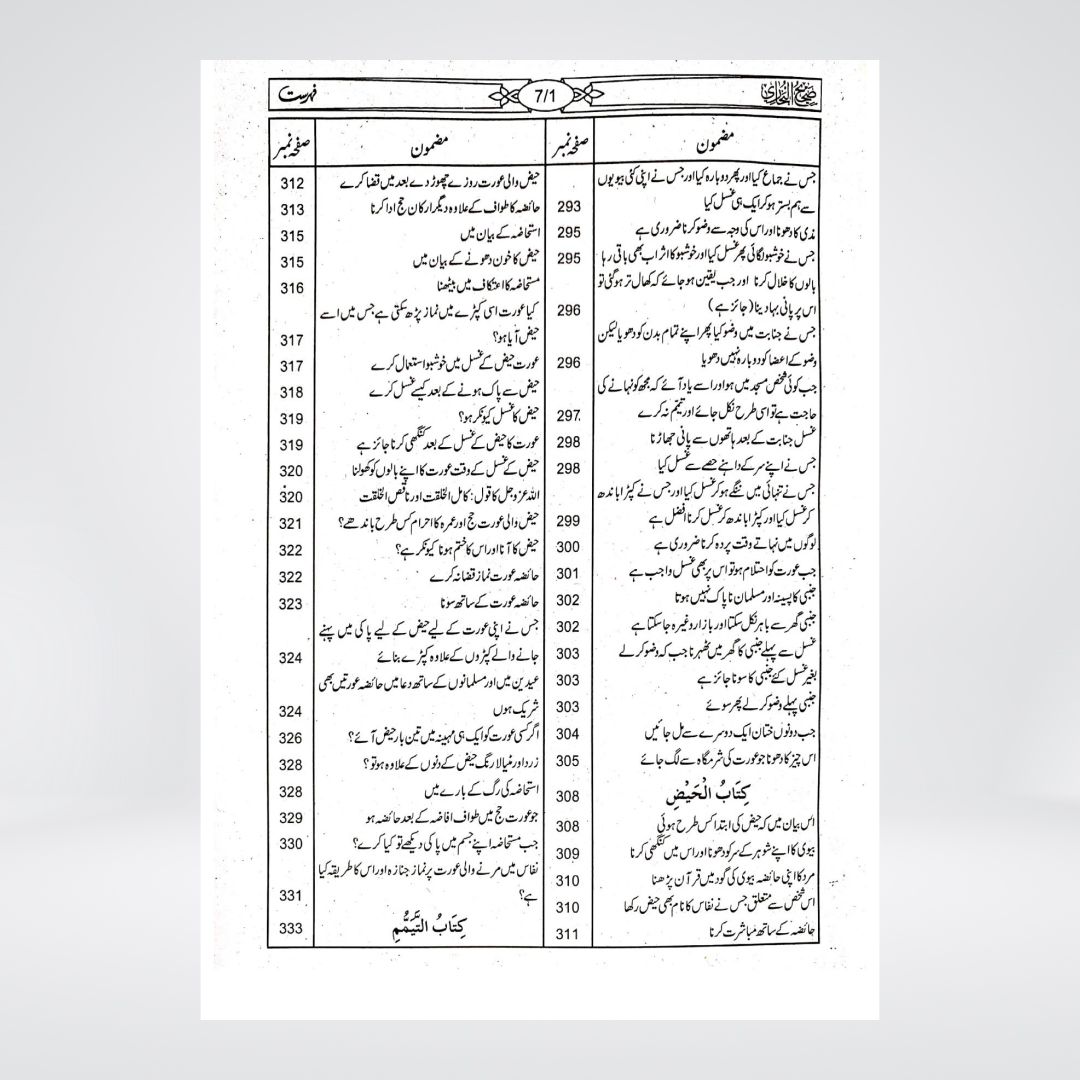 صحیح البخاری
7/1
فہرست
مضمون صفحہ نمبر
جس نے جماع کیا اور پھر دوبارہ کیا اور جس نے اپنی کئی بیویوں
سے ہم بستر ہو کر ایک ہی غسل کیا 293
مذی کا دھونا اور اس کی وجہ سے وضو کرنا ضروری ہے 295
جس نے خوشبو لگائی پھر غسل کیا اور خوشبو کا اثر اب بھی باقی رہا 295
بالوں کا خلال کرنا اور جب یقین ہو جائے کہ کھال تر ہو گئی تو
اس پر پانی بہا دینا (جائز ہے) 296
جس نے جنابت میں وضو کیا پھر اپنے تمام بدن کو دھویا لیکن
وضو کے اعضا کو دوبارہ نہیں دھویا 296
جب کوئی شخص مسجد میں ہو اور اسے یاد آئے کہ مجھ کو نہانے کی
حاجت ہے تو اسی طرح نکل جائے اور تیمم نہ کرے 297
غسل جنابت کے بعد ہاتھوں سے پانی جھاڑنا 298
جس نے اپنے سر کے داہنے حصے سے غسل کیا 298
جس نے تنہائی میں ننگے ہو کر غسل کیا اور جس نے کپڑا باندھ
کر غسل کیا اور کپڑا باندھ کر غسل کرنا افضل ہے 299
لوگوں میں نہاتے وقت پردہ کرنا ضروری ہے 300
جب عورت کو احتلام ہو تو اس پر بھی غسل واجب ہے 301
جنبی کا پسینہ اور مسلمان ناپاک نہیں ہوتا 302
جنبی گھر سے باہر نکل سکتا اور بازار وغیرہ جا سکتا ہے 302
غسل سے پہلے جنبی کا گھر میں ٹھہرنا جب کہ وضو کر لے 303
بغیر غسل کئے جنبی کا سونا جائز ہے 303
جنبی پہلے وضو کر لے پھر سوئے 303
جب دونوں ختان ایک دوسرے سے مل جائیں 304
اس چیز کا دھونا جو عورت کی شرمگاہ سے لگ جائے 305
كِتَابُ الْحَيْضِ 308
اس بیان میں کہ حیض کی ابتدا کس طرح ہوئی 308
بیوی کا اپنے شوہر کے سر کو دھونا اور اس میں کنگھی کرنا 309
مرد کا اپنی حائضہ بیوی کی گود میں قرآن پڑھنا 310
اس شخص سے متعلق جس نے نفاس کا نام بھی حیض رکھا 310
حائضہ کے ساتھ مباشرت کرنا 311
مضمون صفحہ نمبر
حیض والی عورت روزے چھوڑ دے بعد میں قضا کرے 312
حائضہ کا طواف کے علاوہ دیگر ارکان حج ادا کرنا 313
استحاضہ کے بیان میں 315
حیض کا خون دھونے کے بیان میں 315
مستحاضہ کا اعتکاف میں بیٹھنا 316
کیا عورت اسی کپڑے میں نماز پڑھ سکتی ہے جس میں اسے
حیض آیا ہو؟ 317
عورت حیض کے غسل میں خوشبو استعمال کرے 317
حیض سے پاک ہونے کے بعد کیسے غسل کرے 318
حیض کا غسل کیونکر ہو؟ 319
عورت کا حیض کے غسل کے بعد کنگھی کرنا جائز ہے 319
حیض کے غسل کے وقت عورت کا اپنے بالوں کو کھولنا 320
اللہ عزوجل کا قول: کامل الخلقت اور ناقص الخلقت 320
حیض والی عورت حج اور عمرہ کا احرام کس طرح باندھے؟ 321
حیض کا آنا اور اس کا ختم ہونا کیونکر ہے؟ 322
حائضہ عورت نماز قضا نہ کرے 322
حائضہ عورت کے ساتھ سونا 323
جس نے اپنی عورت کے لیے حیض کے لیے پاکی میں پہنے
جانے والے کپڑوں کے علاوہ کپڑے بنائے 324
عیدین میں اور مسلمانوں کے ساتھ دعا میں حائضہ عورتیں بھی
شریک ہوں 324
اگر کسی عورت کو ایک ہی مہینہ میں تین بار حیض آئے؟ 326
زرد اور مٹیالا رنگ حیض کے دنوں کے علاوہ ہو تو؟ 328
استحاضہ کی رگ کے بارے میں 328
جو عورت حج میں طواف افاضہ کے بعد حائضہ ہو 329
جب مستحاضہ اپنے جسم میں پاکی دیکھے تو کیا کرے؟ 330
نفاس میں مرنے والی عورت پر نماز جنازہ اور اس کا طریقہ کیا
ہے؟ 331
كِتَابُ التَّيَمُّمِ 333